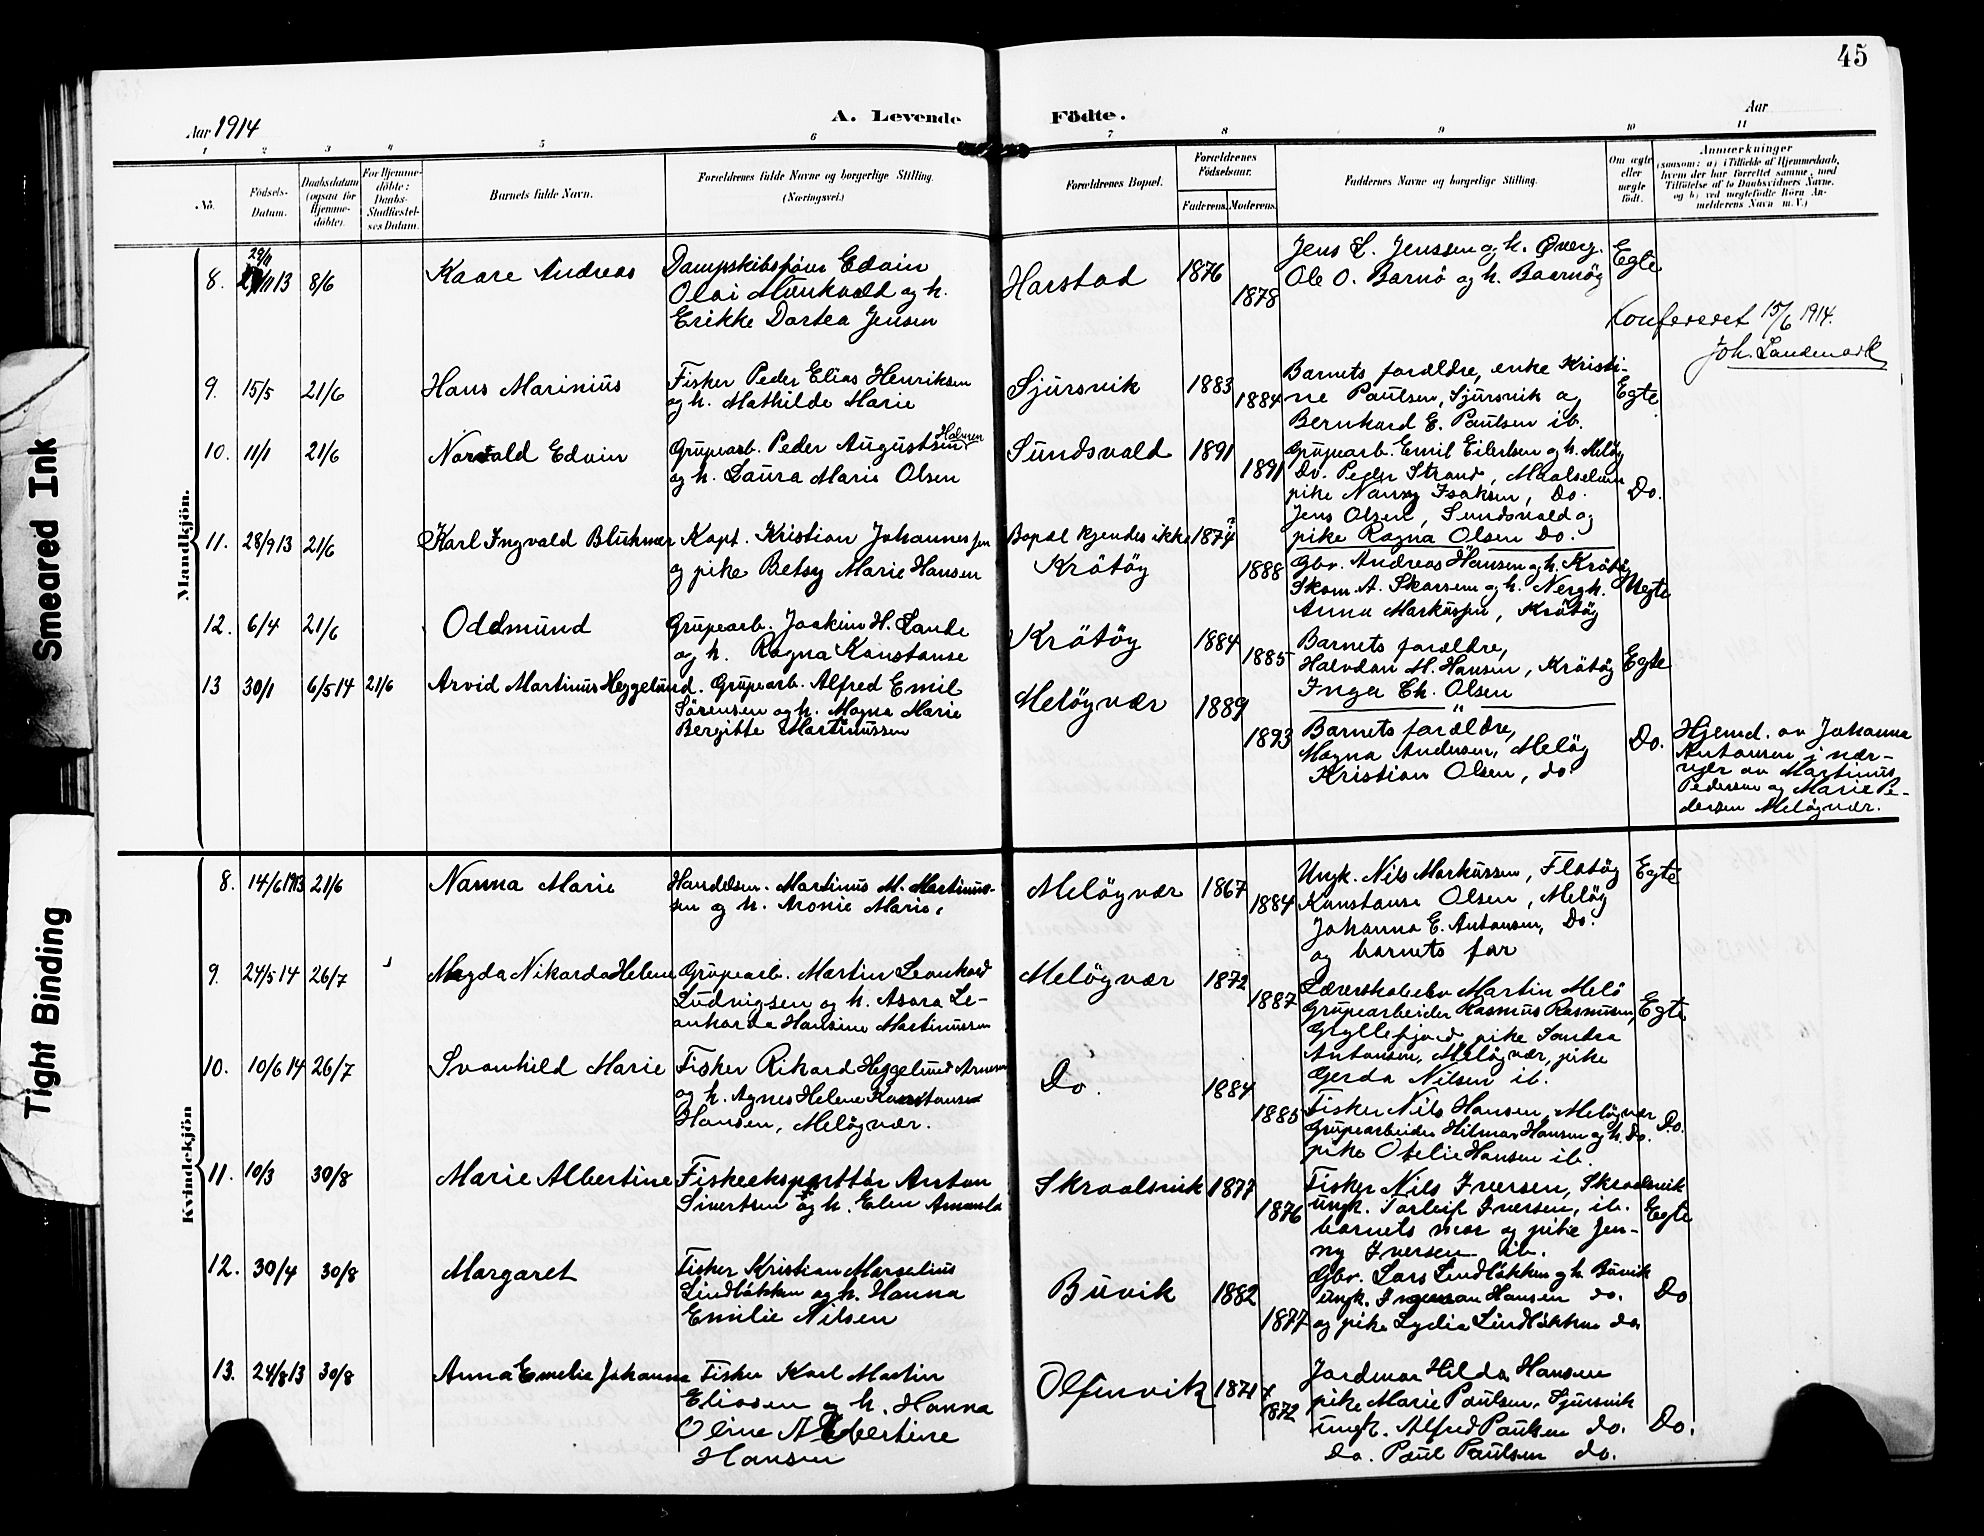 45
Aar 1914
A. Levende Födte.
Aar
1 2 3 4 5 6 7 8 9 10 11
No.
Födsels-
Datum.
Daabsdatum
(ogsaa for
Hjemme-
döbte).
For Hjemme-
döbte:
Daabs-
Stadfæstel-
ses Datum.
Barnets fulde Navn.
Forældrenes fulde Navne og borgerlige Stilling.
(Næringsvei.)
Forældrenes Bopæl.
Forældrenes
Födselsaar.
Faderens. Moderens.
Faddernes Navne og borgerlige Stilling.
Om ægte
eller
uægte
födt.
Anmærkninger
(saasom: a) i Tilfælde af Hjemmedaab,
hvem der har forrettet samme, med
Tilföielse af to Daabsvidners Navne,
og b) ved uægtefödte Börn An-
melderens Navn m. V.)
Smeared Ink
Tight Binding
Mandkjön.
8. 29/11 13 8/6 Kaare Andreas
Dampskibsfører Edvin
Olai Munkvold og h.
Erikke Dortea Jensen
Harstad 1876 1878
Jens L. Jenssen og h. Överg.
Ole O. Barnö og h. Baarnöy
Egte
Konfereret 15/6 1914.
Joh. Landmark
9. 15/5 21/6 Hans Marinius
Fisker Peder Elias Henriksen
og h. Mathilde Marie
Sjursvik 1883 1884
Barnets forældre, enke Kristi-
ne Paulsen, Sjursvik og
Bernhard E. Paulsen ib.
Egte.
10. 11/1 21/6 Norvald Edvin
Grupearb. Peder Augustsen
og h. Laura Marie Olsen
Sundsvald 1891 1891
Grupearb. Emil Eilertsen og h. Melöy
Do. Peder Strand, Maalselven
pike Nanny Isaksen, Do.
Jens Olsen, Sundsvald og
pike Ragna Olsen Do.
Do.
11. 28/9 13 21/6 Karl Ingvald Bluhmer
Kapt. Kristian Johannesen
og pike Betsy Marie Hansen
Bopæl kjendes ikke
Kröttöy
1874? 1888
Gbr. Andreas Hansen og h. Krötöy
Skom. A. Skarsem og h. Nergh.
Anna Markussen, Krötöy
Uegte
12. 6/4 21/6 Oddmund
Grupearb. Joakim H. Lande
og h. Ragna Konstanse
Krötöy 1884 1885
Barnets forældre,
Halvdan M. Hansen, Krötöy
Inga Ch. Olsen "
Egte
13 30/1 6/5 14 21/6 Arvid Martinus Heggelund.
Grupearb. Alfred Emil
Sörensen og h. Magna Marie
Bergitte Martinussen
Melöyvær 1889 1893
Barnets forældre,
Magna Andersen, Melöy
Kristian Olsen, do.
Do.
Hjemd. av Johanna
Antonsen i nær-
vær av Martinus
Pedersen og Marie Pe-
dersen Melöyvær.
Kvindekjön
8. 14/6 1913 21/6 Nanna Marie
Handelsm. Martinus M. Martinus-
sen og h. Aronie Marie.
Melöyvær 1867 1884
Ungk. Nils Markussen, Flatöy
Konstanse Olsen, Melöy
Johanna E. Antonsen, Do.
og barnets far
Egte
9. 24/5 14 26/7 Magda Nikarda Helene
Grupearb. Martin Leonhard
Ludvigsen og h. Asora Le-
onharda Hansine Martinussen
Melöyvær 1872 1887
Lærerskoleelev Martin Melö
Grupearbeider Rasmus Rasmussen,
Gryllefjord, pike Sandra
Antonsen, Melöyvær, pike
Gerda Nilsen ib.
Egte
10. 10/6 14 26/7 Svanhild Marie
Fisker Rikard Heggelund Arnesen
og h. Agnes Helene Konstanse
Hansen, Melöyvær.
Do. 1884 1885
Fisker Nils Hansen, Melöyvær
Grupearbeider Hilmar Hansen og h. Do.
pike Otelie Hansen ib.
Do.
11. 10/3 30/8 Marie Albertine
Fiskeeksportör Anton
Sivertsen og h. Elen Amanda
Skroalsvik 1877 1876
Fisker Nils Iversen, Skroalsvik
ungk. Torleif Iversen, ib.
barnets mor og pike Jen-
ny Iversen ib.
Egte
12. 30/4 30/8 Margaret
Fisker Kristian Marselius
Lindlökken og h. Hanna
Emilie Nilsen
Buvik 1882 1877
Gbr. Lars Lindlökken og h. Buvik
ungk. Ingeman Hansen do.
og pike Lydia Lindlökken do.
Do
13. 24/8 13 30/8 Anna Emelie Johanna
Fisker Karl Martin
Eliasen og h. Hanna
Oline Albertine
Hansen
Olfinvik 1874 1872
Jordmor Hilda Hansen
pike Marie Paulsen, Sjursvik
ungk. Alfred Paulsen do.
Do. Paul Paulsen do.
Do.